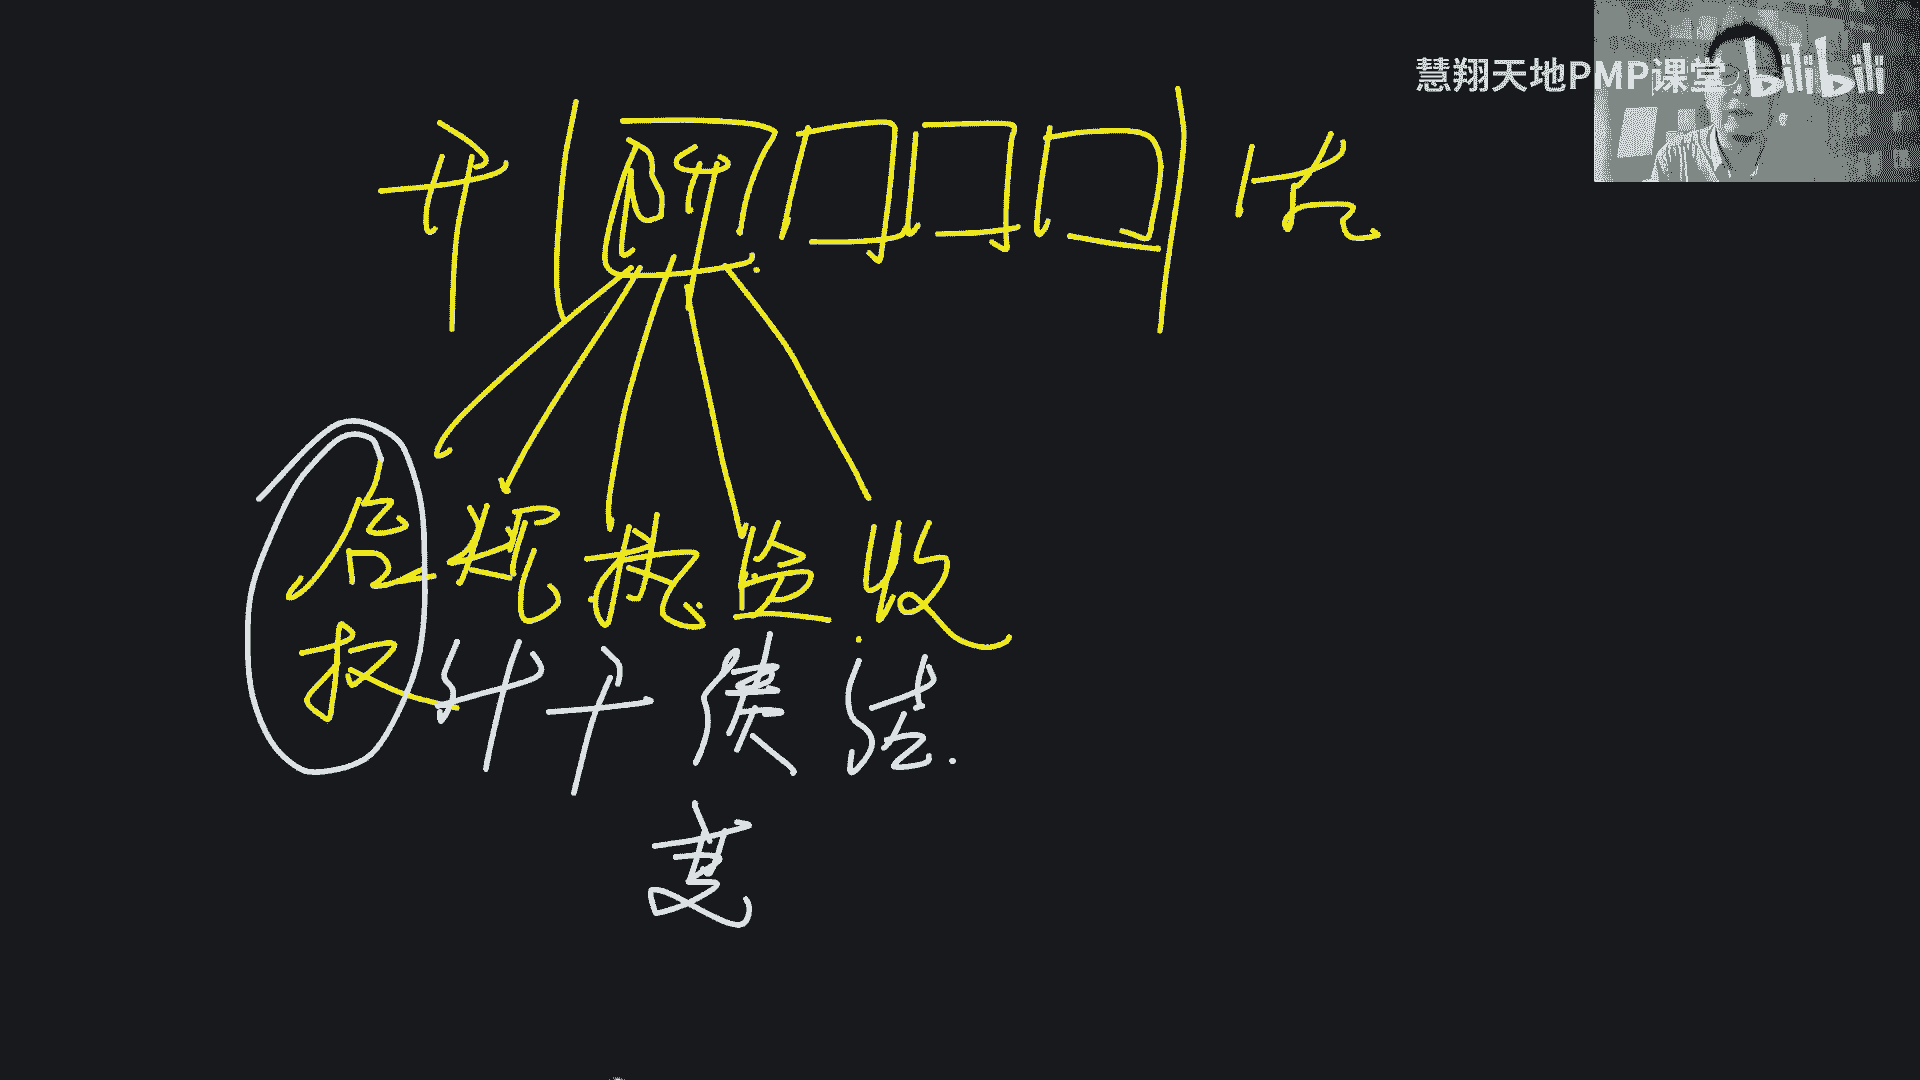 慧翔天地PMP课堂 bilibili
开 阶 估
启 规 执 监 收
权 计 干 偾 结
变